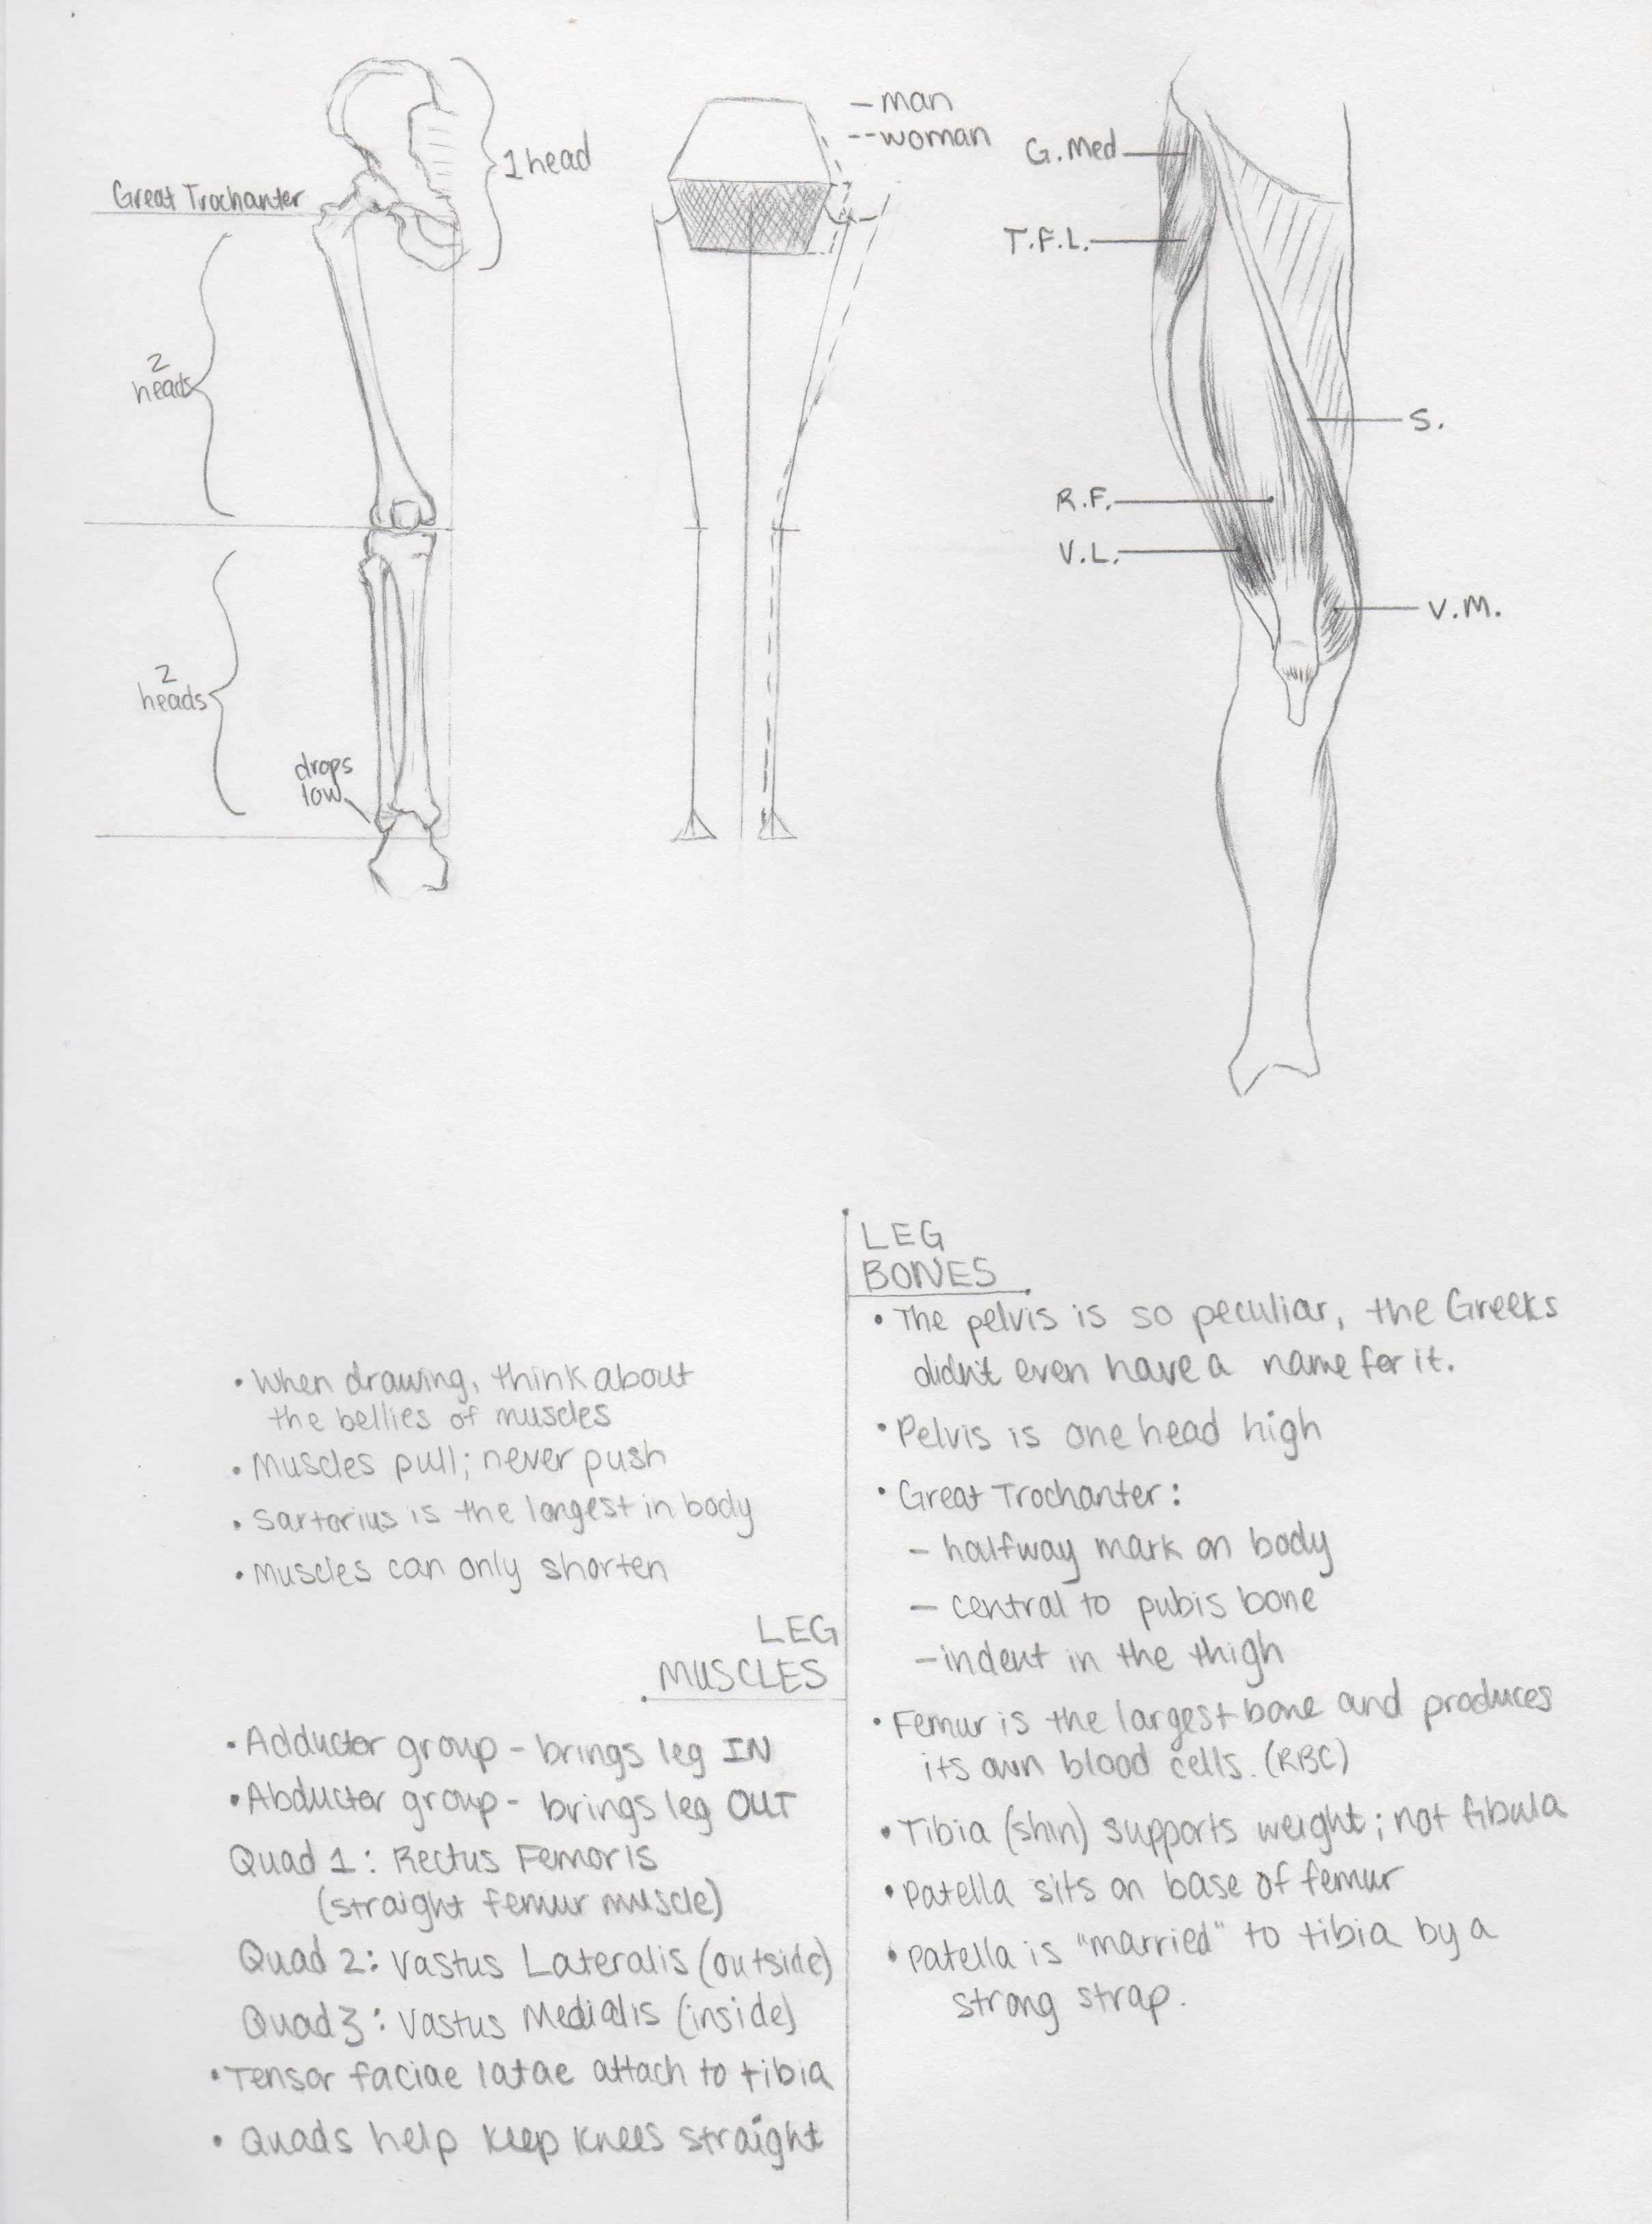 Great Trochanter
1 head
2
heads
2
heads
drops
low
– man
-- woman
G. Med
T.F.L.
S.
R.F.
V.L.
V.M.
• When drawing, think about
the bellies of muscles
• Muscles pull; never push
• Sartorius is the longest in body
• Muscles can only shorten
LEG
MUSCLES
• Adductor group - brings leg IN
• Abductor group - brings leg OUT
Quad 1: Rectus Femoris
(straight femur muscle)
Quad 2: Vastus Lateralis (outside)
Quad 3: Vastus Medialis (inside)
• Tensor faciae latae attach to tibia
• Quads help keep knees straight
LEG
BONES
• The pelvis is so peculiar, the Greeks
didn't even have a name for it.
• Pelvis is one head high
• Great Trochanter:
– halfway mark on body
– central to pubis bone
– indent in the thigh
• Femur is the largest bone and produces
its own blood cells. (RBC)
• Tibia (shin) supports weight; not fibula
• Patella sits on base of femur
• Patella is "married" to tibia by a
strong strap.